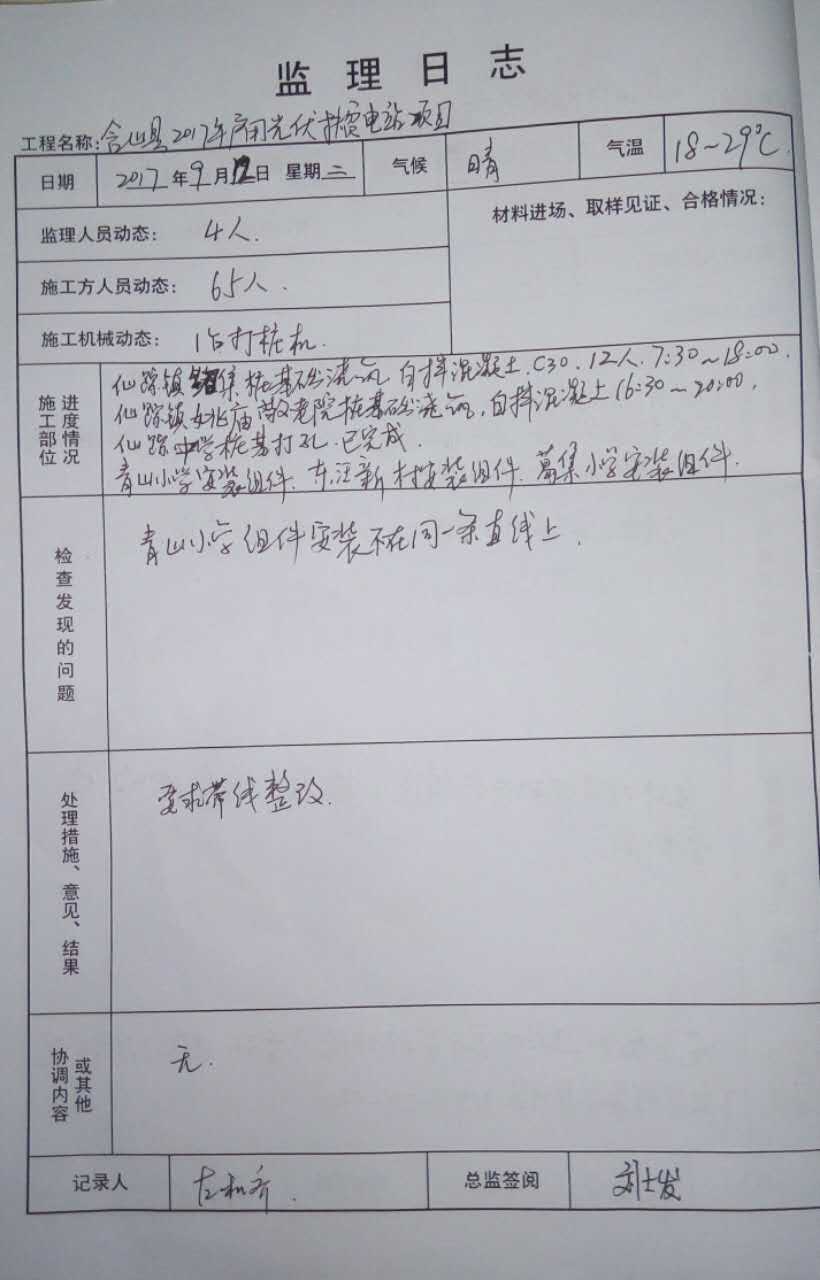 监理日志
工程名称: 含山县2017年户用光伏扶贫电站项目
日期 2017年9月12日 星期二 气候 晴 气温 18~29℃
监理人员动态: 4人.
材料进场、取样见证、合格情况:
施工方人员动态: 65人.
施工机械动态: 1台打桩机.
施工部位进度情况
仙踪镇集桩基础浇筑 自拌混凝土. C30. 12人. 7:30~18:00.
仙踪镇北庙敬老院桩基础浇筑, 自拌混凝土 16:30~20:00,
仙踪中学桩基打孔. 已完成.
青山小学安装组件. 东汪新村安装组件. 葛集小学安装组件.
检查发现的问题
青山小学组件安装不在同一条直线上.
处理措施、意见、结果
要求带线整改.
协调内容或其他
无.
记录人 总监签阅 刘士发